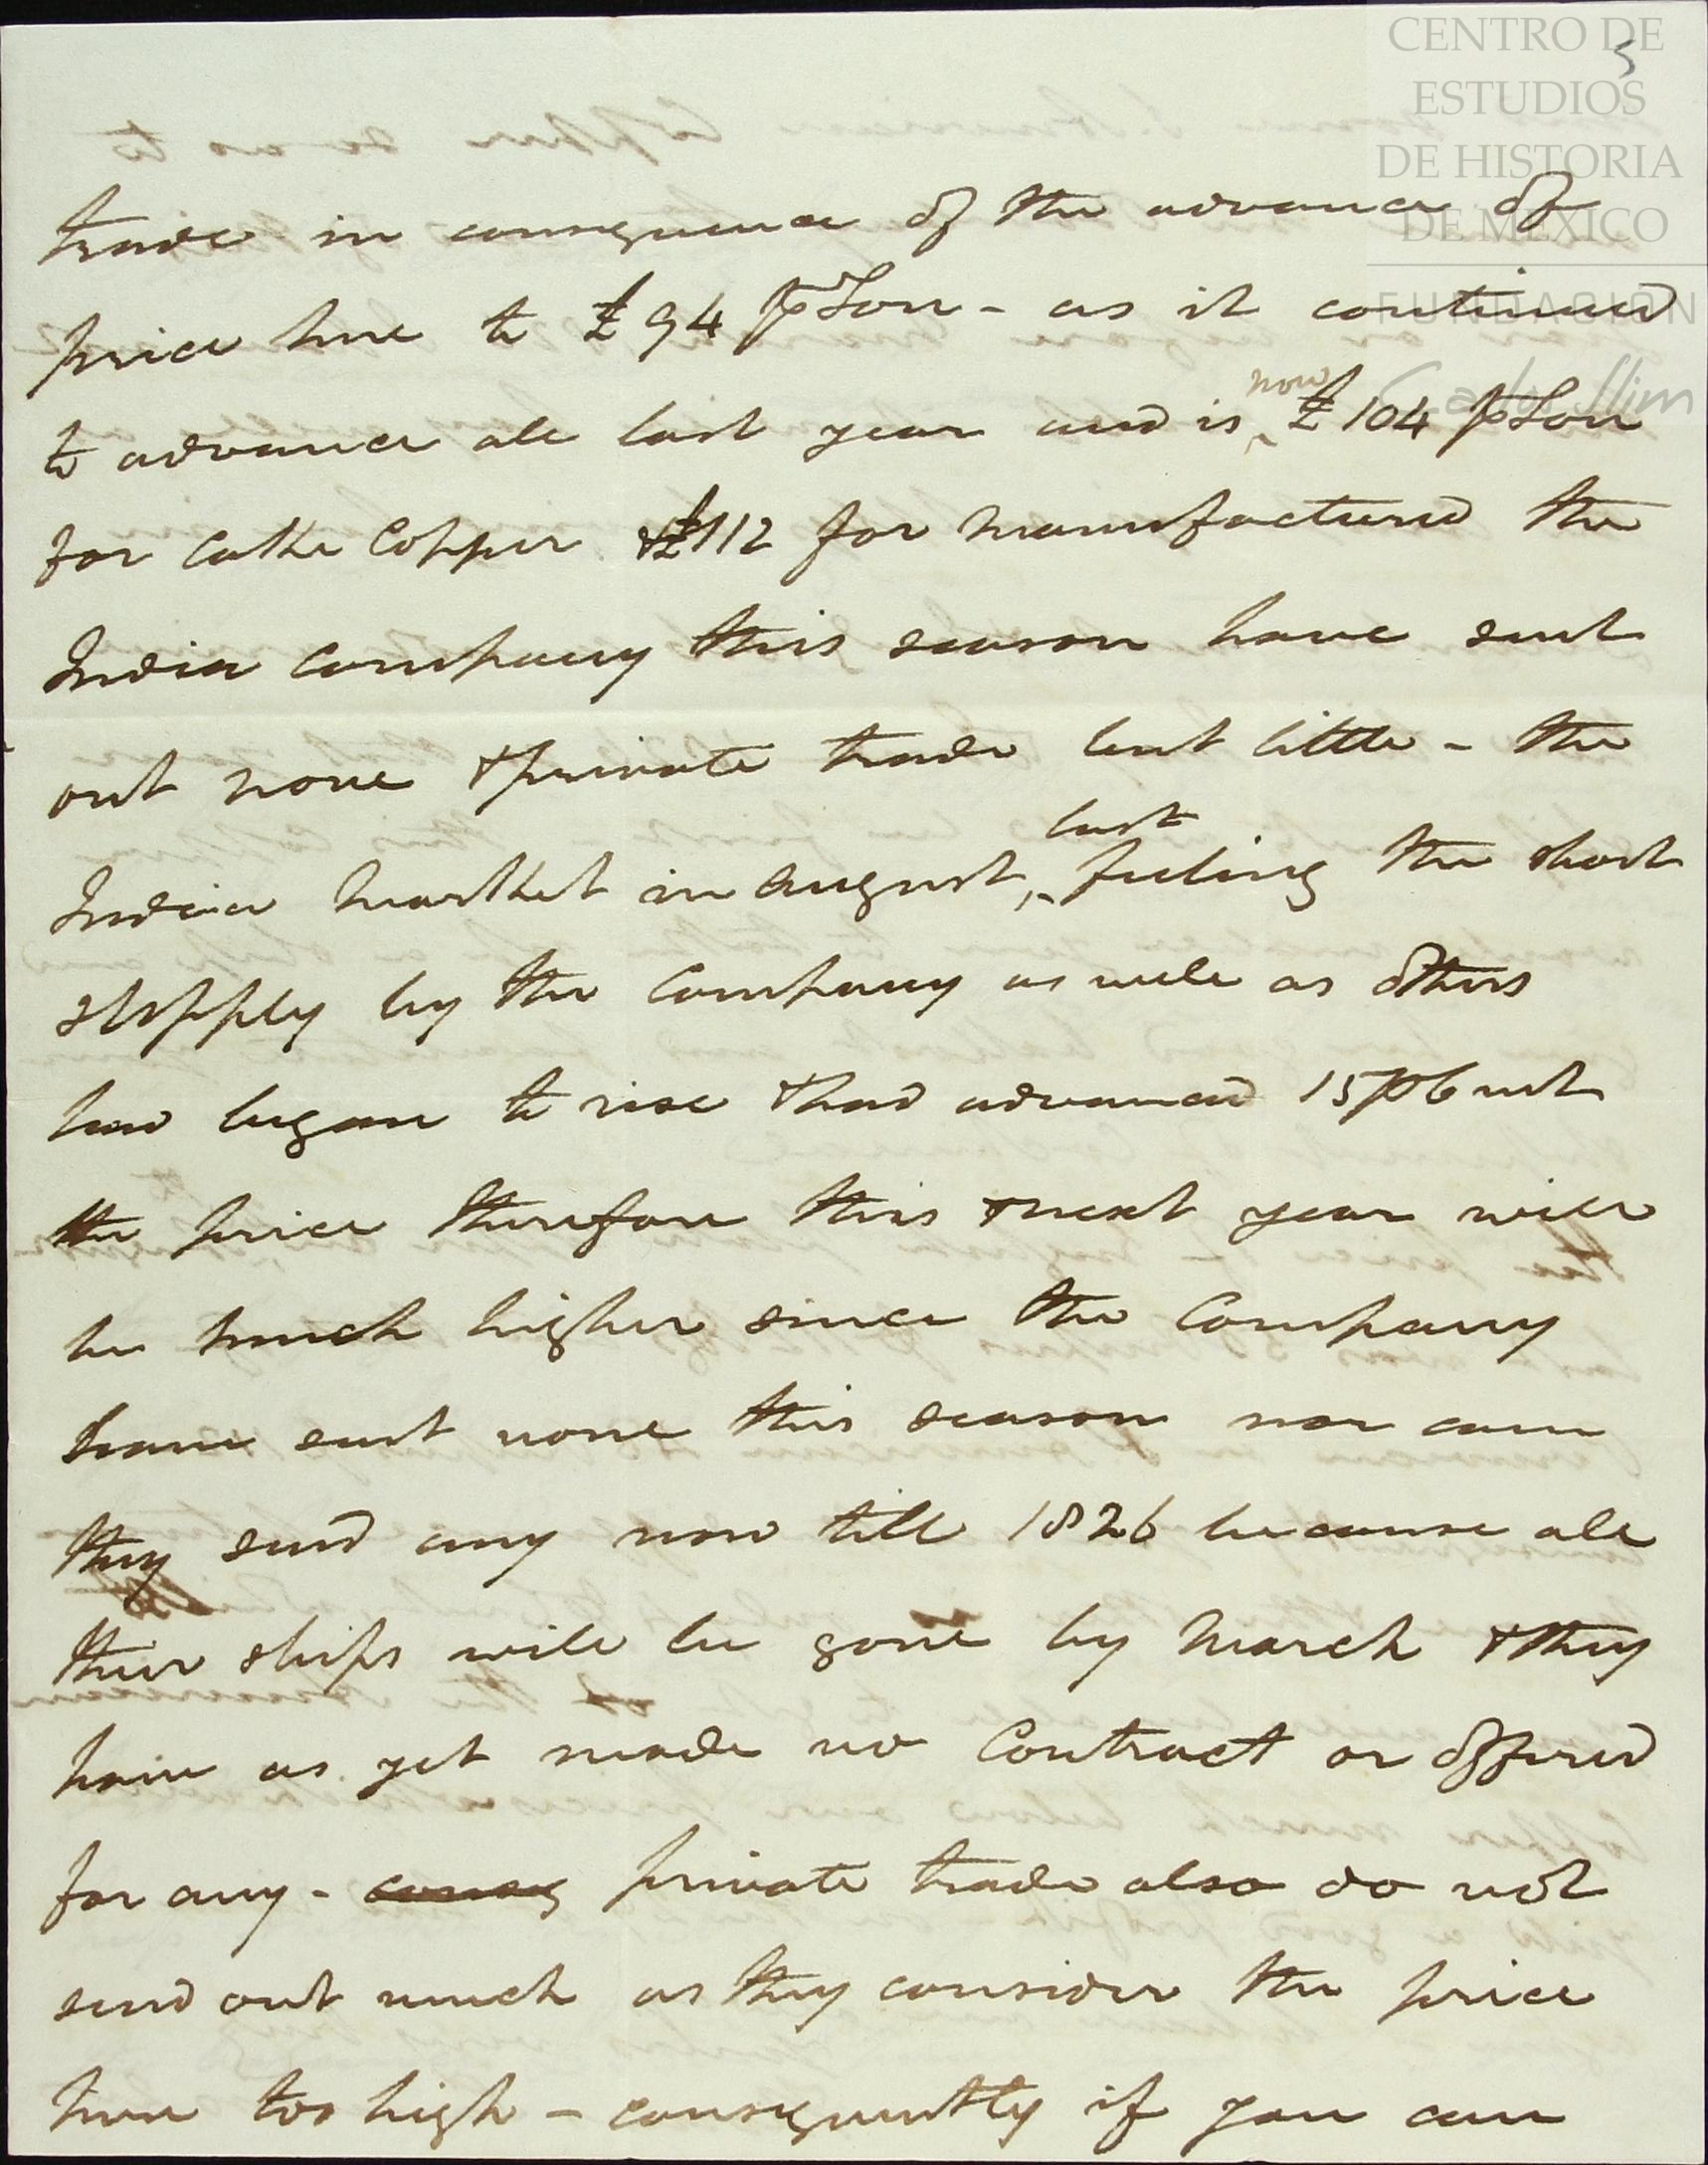 CENTRO DE
ESTUDIOS
DE HISTORIA
DE MEXICO
FUNDACIÓN
Carlos Slim
5
trade in consequence of the advance of
price here to £94 ⅌ Ton - as it continued
to advance all last year and is now £104 ⅌ Ton
for Cake Copper & £112 for manufactured the
India Company this season have sent
out none & private trade but little - the
India Market in August last, feeling the short
supply by the Company as well as others
had began to rise & had advanced 15 ⅌ Cent
the price therefore this & next year will
be much higher since the Company
have sent none this season nor can
they send any now till 1826 because all
their ships will be gone by March & they
have as yet made no Contract or offered
for any - private trade also do not
send out much as they consider the price
here too high - consequently if you can